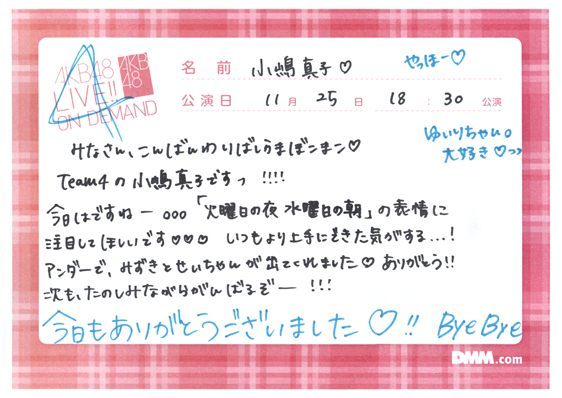 AKB48
LIVE!!
ON DEMAND
AKB
48
名前 小嶋真子♡
やっほー♡
公演日 11月 25日 18:30 公演
ゆいりちゃん。
大好き♡っっ
みなさん、こんばんわりばしらまぼンマン♡
Team4の小嶋真子ですっ !!!!
今日はですねー ooo「火曜日の夜 水曜日の朝」の表情に
注目してほしいです♡♡♡ いつもより上手にできた気がする...!
アンダーで、みずきとせいちゃんが出てくれました♡ ありがとう!!
次も、たのしみながらがんばるぞー !!!
今日もありがとうございました♡!! ByeBye
DMM.com